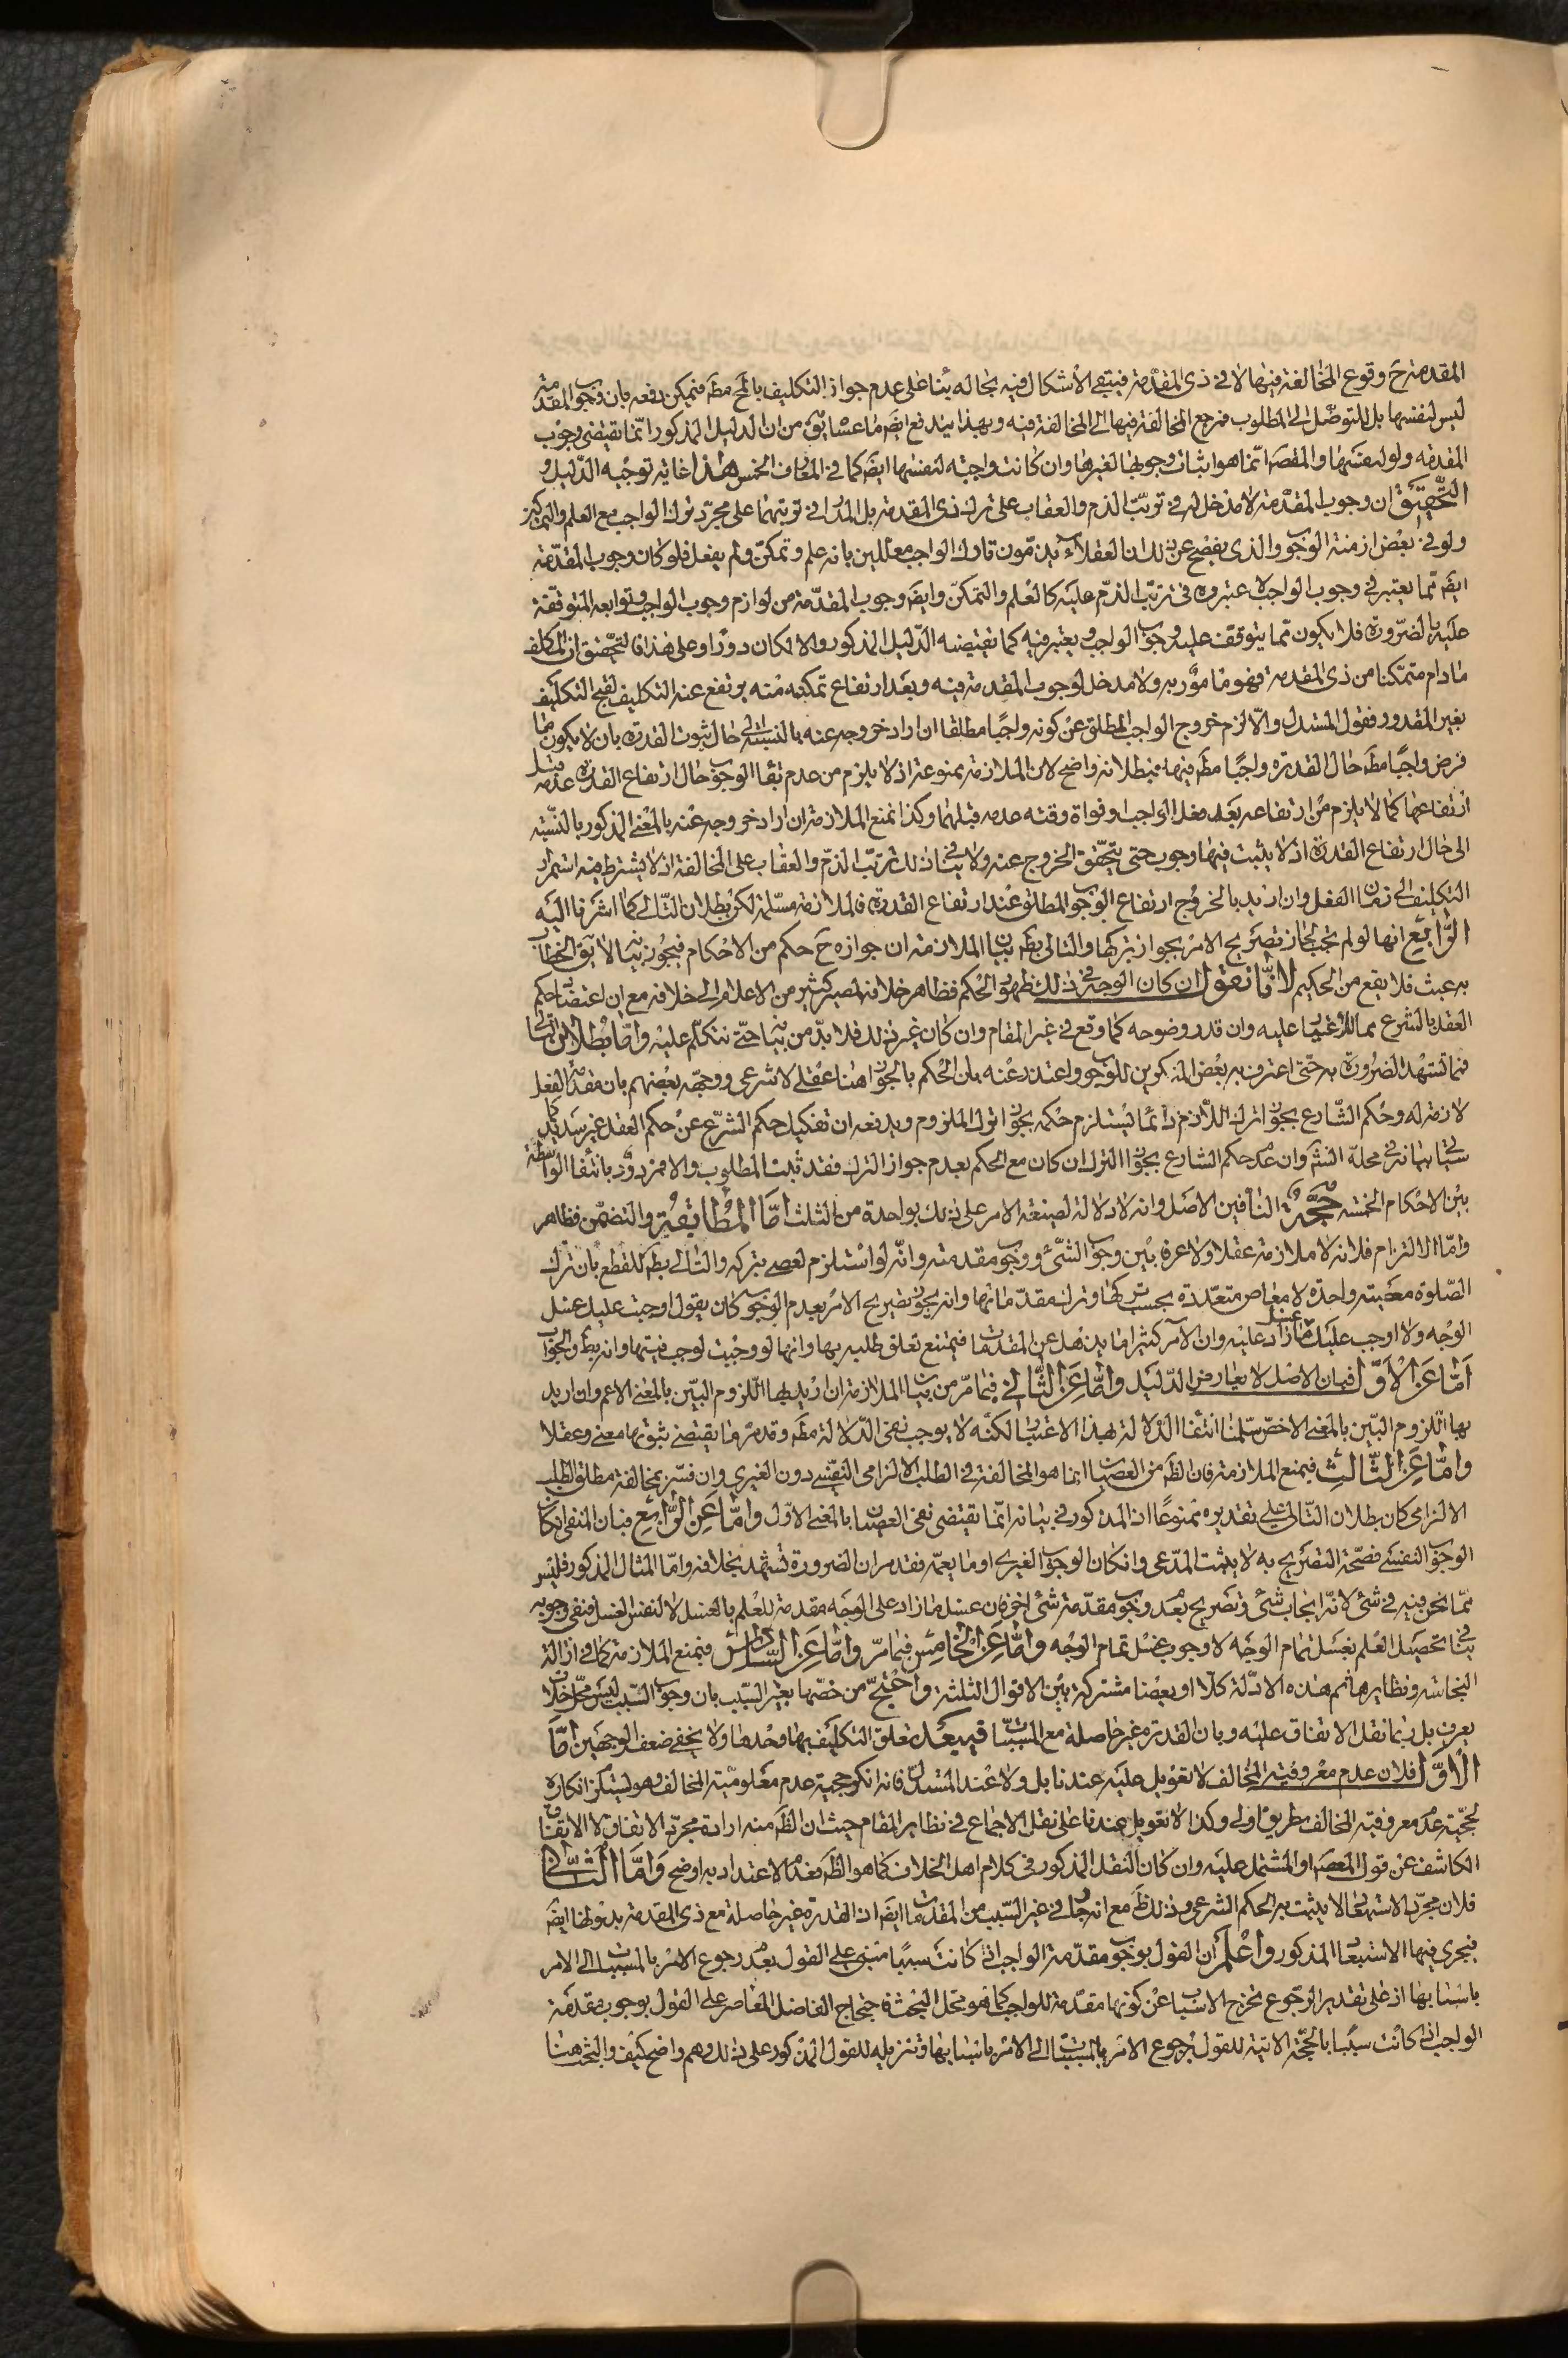 المقدمة ح وقوع المخالفة فيها لا في ذى المقدمة فيبقى الاشكال فيه بحاله بناء على عدم جواز التكليف بالمح مط فيمكن دفعه بان وجوب المقدمة
ليس لنفسها بل للتوصل الى المطلوب فرجع المخالفة فيها الى المخالفة فيه وبهذا يندفع ايض ما عسا يق من ان الدليل المذكور انما يقتضى وجوب
المقدمة ولو لنفسها والمقص انما هو اثبات وجوبها لغيرها وان كانت واجبة لنفسها ايض كما في المعارف الخمس هذا غاية توجيه الدليل و
التحقيق ان وجوب المقدمة لا مدخل له في ترتب الذم والعقاب على ترك ذى المقدمة بل المدار في ترتبهما على مجرد ترك الواجب مع العلم والتمكن
ولو في بعض ازمنة الوجوب والذى يفصح عن ذلك ان العقلاء يذمون تارك الواجب معللين بانه علم وتمكن ولم يفعل فلو كان وجوب المقدمة
ايض مما يعتبر في وجوب الواجب لاعتبروه في ترتب الذم عليه كالعلم والتمكن وايض وجوب المقدمة من لوازم وجوب الواجب وتوابعه المتوقفة
عليه بالضرورة فلا يكون مما يتوقف عليه وجوب الواجب ويعتبر فيه كما يقتضيه الدليل المذكور والا لكان دورا وعلى هذا فالتحقيق ان المكلف
ما دام متمكنا من ذى المقدمة فهو مامور به ولا مدخل لوجوب المقدمة فيه وبعد ارتفاع تمكنه منه يرتفع عنه التكليف لقبح التكليف
بغير المقدور فقول المستدل والا لزم خروج الواجب المطلق عن كونه واجبا مطلقا ان اراد خروجه عنه بالنسبة الى حال ثبوت القدرة بان لا يكون ما
فرض واجبا مط حال القدرة واجبا مط فيها فبطلانه واضح لان الملازمة ممنوعة اذ لا يلزم من عدم بقاء الوجوب حال ارتفاع القدرة عدمه قبل
ارتفاعها كما لا يلزم من ارتفاعه بعد فعل الواجب او فوات وقته عدمه قبلهما وكذا نمنع الملازمة ان اراد خروجه عنه بالمعنى المذكور بالنسبة
الى حال ارتفاع القدرة اذ لا يثبت فيها وجوب حتى يتحقق الخروج عنه ولا ينافي ذلك ترتب الذم والعقاب على المخالفة اذ لا يشترط فيه استمرار
التكليف الى زمان الفعل وان اريد بالخروج ارتفاع الوجوب المطلق عند ارتفاع القدرة فالملازمة مسلمة لكن بطلان التالى كما اشرنا اليه
الرابع انها لو لم تجب لجاز تصريح الامر بجواز تركها والتالى بط بيان الملازمة ان جوازه ح حكم من الاحكام فيجوز بيانه لا يق الخطاب
به عبث فلا يقع من الحكيم لانا نقول ان كان الوجه في ذلك ظهور الحكم فظاهر خلافه لمصير كثير من الاعلام الى خلافه مع ان اعتضاد حكم
العقل بالشرع مما لا غبار عليه وان قدر وضوحه كما وقع في غير المقام وان كان غير ذلك فلا بد من بيانه حتى نتكلم عليه واما بطلان التالى
فمما تشهد الضرورة به حتى اعترف به بعض المنكرين للوجوب واعتذر عنه بان الحكم بالجواز هنا عقلى لا شرعى ووجهه بعضهم بان مقدمة الفعل
لازمة له وحكم الشارع بجواز ترك اللازم دائما يستلزم حكمه بجواز ترك الملزوم ويدفعه ان تفكيك حكم الشرع عن حكم العقل غير سديد كما
سيأتى بيانه في محله انشاء وان عدم حكم الشارع بجواز الترك ان كان مع الحكم بعدم جواز الترك فقد ثبت المطلوب والا فمردود بانتفاء الواسطة
بين الاحكام الخمسة حجة النافين الاصل وانه لا دلالة لصيغة الامر على ذلك بواحدة من الثلث اما المطابقة والتضمن فظاهر
واما الالتزام فلانه لا ملازمة عقلا ولا عرفا بين وجوب الشئ ووجوب مقدمته وانه لو استلزم لعصى بتركه والتالى بط للقطع بان ترك
الصلوة معصية واحدة لا معاص متعددة بحسب تركها وترك مقدماتها وانه يجوز تصريح الامر بعدم الوجوب كان يقول اوجبت عليك غسل
الوجه ولا اوجب عليك غسل ما زاد عليه وان الآمر كثيرا ما يذهل عن المقدمات فيمتنع تعلق طلبه بها وانها لو وجبت لوجب نيتها وانه بط والجواب
اما عن الاول فبان الاصل لا يعارض الدليل واما عن الثانى فبما مر من بيان الملازمة ان اريد بها اللزوم البين بالمعنى الاعم وان اريد
بها اللزوم البين بالمعنى الاخص سلمنا انتفاء الدلالة بهذا الاعتبار لكنه لا يوجب نفى الدلالة مط وقد مر ما يقتضى ثبوتها معنى وعقلا
واما عن الثالث فبمنع الملازمة فان الظ من العصيان انما هو المخالفة في الطلب الالزامى النفسى دون الغيرى وان فسر بمخالفة مطلق الطلب
الالزامى كان بطلان التالى على تقديره ممنوعا اذ المذكور في بيانه انما يقتضى نفى العصيان بالمعنى الاول واما عن الرابع فبان المنفى ان كان
الوجوب النفسى فصحة التصريح به لا يثبت المدعى وان كان الوجوب الغيرى او ما يعمه فقد مر ان الضرورة تشهد بخلافه واما المثال المذكور فليس
مما نحن فيه في شئ لانه ايجاب شئ وتصريح بعدم وجوب مقدمة شئ اخر فان غسل ما زاد على الوجه مقدمة للعلم بالغسل لا لنفس الغسل فنفى وجوبه
ينافي تحصيل العلم بغسل تمام الوجه لا وجوب غسل تمام الوجه واما عن الخامس فبما مر واما عن السادس فبمنع الملازمة كما في ازالة
النجاسة ونظايرها ثم هذه الادلة كلا او بعضا مشتركة بين الاقوال الثلثة واحتج من خصها بغير السبب بان وجوب السبب ليس محل خلاف
يعرف بل ربما نقل الاتفاق عليه وبان القدرة غير حاصلة مع المسببات فيبعد تعلق التكليف بها وحدها ولا يخفى ضعف الوجهين اما
الاول فلان عدم معروفية المخالف لا تعويل عليه عندنا بل ولا عند المستدل فانه انكر حجية عدم معلومية المخالف وهو يستلزم انكاره
لحجية عدم معروفية المخالف بطريق اولى وكذا لا تعويل عندنا على نقل الاجماع في نظاير المقام حيث ان الظ منه ارادة مجرد الاتفاق لا الاتفاق
الكاشف عن قول المعصوم او المشتمل عليه وان كان النقل المذكور في كلام اهل الخلاف كما هو الظ فعدم الاعتداد به اوضح واما الثانى
فلان مجرد الاستبعاد لا يثبت به الحكم الشرعى وذلك ظ مع انه جار في غير السبب من المقدمات ايض اذ القدرة غير حاصلة مع ذى المقدمة بدونها ايض
فيجرى فيها الاستبعاد المذكور واعلم ان القول بوجوب مقدمة الواجب اذا كانت سببا مبنى على القول بعدم رجوع الامر بالمسببات الى الامر
باسبابها اذ على تقدير الرجوع تخرج الاسباب عن كونها مقدمة للواجب كما هو محل البحث فاحتجاج الفاضل المعاصر على القول بوجوب مقدمة
الواجب اذا كانت سببا بالحجة الاتية للقول برجوع الامر بالمسببات الى الامر باسبابها وتنزيله للقول المذكور على ذلك وهم واضح كيف والبحث هنا